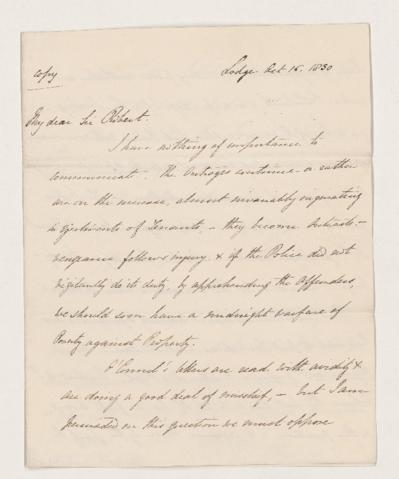 Copy
Lodge Oct 15. 1830
My dear Sir Robert.
I have nothing of importance to
communicate. The Outrages continue - or rather
are on the increase, almost invariably originating
in Ejectments of Tenants, - they become Outcasts -
vengeance follows injury & if the Police did not
vigilantly do its duty, by apprehending the Offenders,
we should soon have a midnight warfare of
Poverty against Property.
O'Connel's letters are read with avidity &
are doing a good deal of mischief, - but I am
persuaded on this question we must oppose